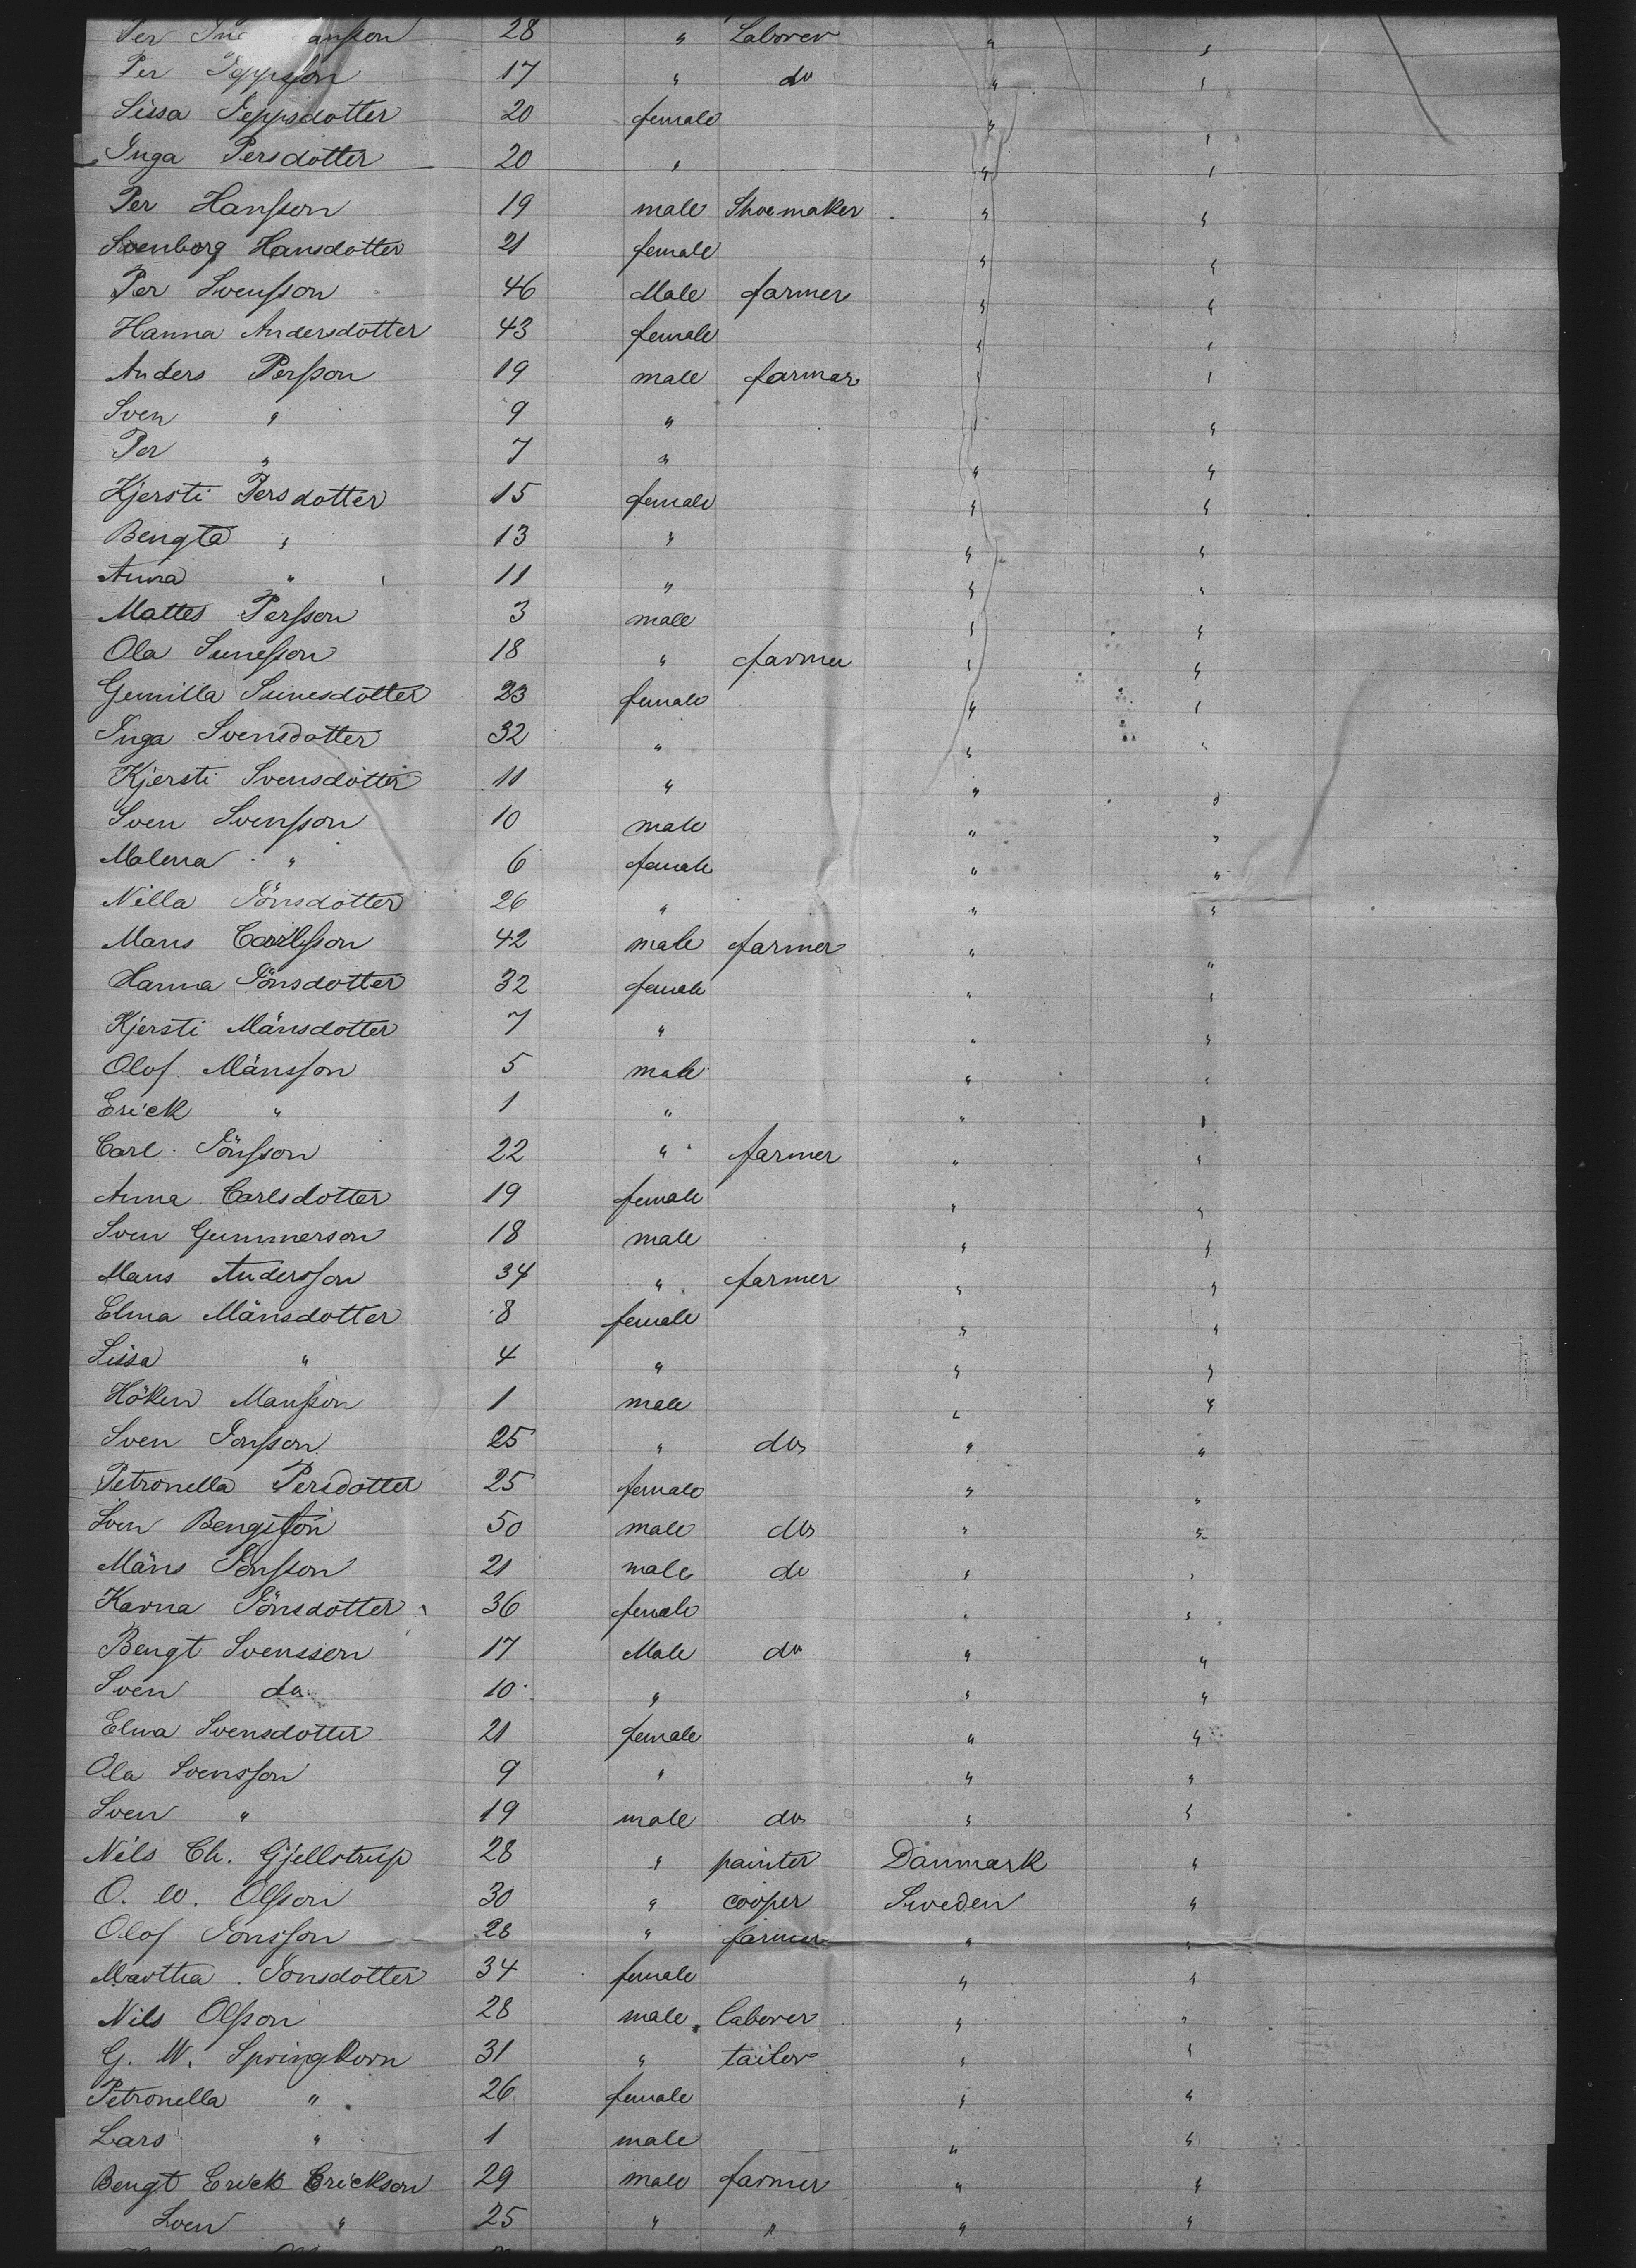 Per 28 " Laborer " "
Per Jeppsson 17 " do " "
Sissa Jeppsdotter 20 female " "
Inga Persdotter 20 " " "
Per Hansson 19 male Shoemaker " "
Svenborg Hansdotter 21 female " "
Per Svensson 46 Male farmer " "
Hanna Andersdotter 43 female " "
Anders Persson 19 male farmer " "
Sven " 9 " " "
Per " 7 " " "
Kjersti Persdotter 15 female " "
Bengta " 13 " " "
Anna " 11 " " "
Mattes Persson 3 male " "
Ola Sunesson 18 " farmer " "
Gunilla Sunesdotter 23 female " "
Inga Svensdotter 32 " " "
Kjersti Svensdotter 11 " " "
Sven Svensson 10 male " "
Malena " 6 female " "
Nilla Jönsdotter 26 " " "
Mans Carlsson 42 male farmer " "
Hanna Jönsdotter 32 female " "
Kjersti Mänsdotter 7 " " "
Olof Mänsson 5 male " "
Erick " 1 " " "
Carl Jönsson 22 " farmer " "
Anna Carlsdotter 19 female " "
Sven Gummerson 18 male " "
Mans Andersson 34 " farmer " "
Elna Mänsdotter 8 female " "
Sissa " 4 " " "
Höken Mansson 1 male " "
Sven Jonsson 25 " do " "
Petronella Persdotter 25 female " "
Sven Bengtsson 50 male do " "
Mäns Jönsson 21 male do " "
Karna Jönsdotter 36 female " "
Bengt Svensson 17 Male do " "
Sven do 10 " " "
Elna Svensdotter 21 female " "
Ola Svensson 9 " " "
Sven " 19 male do " "
Nils Ch. Gjellstrup 28 " painter Danmark "
O. W. Olsson 30 " cooper Sweden "
Olof Jonsson 28 " farmer " "
Martha Jönsdotter 34 female " "
Nils Olsson 28 male laborer " "
G. W. Springkorn 31 " tailor " "
Petronella " 26 female " "
Lars " 1 male " "
Bengt Erick Erickson 29 male farmer " "
Sven " 25 " " " "